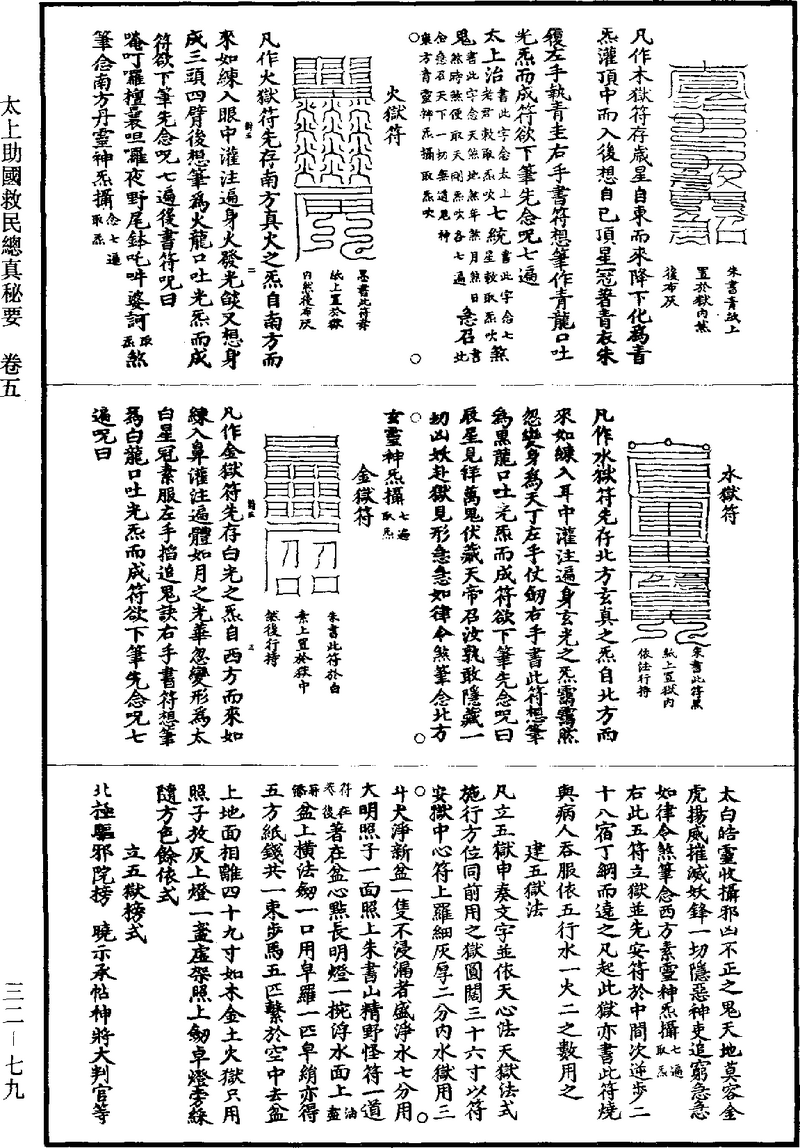 太上助國救民總真秘要　卷五
三二－七九
朱書青紙上
置於獄內然
後布灰
凡作木獄符存歲星自東而來降下化為青
炁灌頂中而入後想自己頂星冠著青衣朱
履左手執青圭右手書符想筆作青龍口吐
光炁而成符欲下筆先念呪七遍
太上治
七統
煞
鬼
急召
火獄符
墨書此符於
紙上置於獄
內然後布灰
凡作火獄符先存南方真火之炁自南方而
來如練入眼中灌注遍身火發光燄又想身
成三頭四臂後想筆為火龍口吐光炁而成
符欲下筆先念呪七遍後書符呪曰
唵吽囉檀曩呾囉夜野尾鉢吒吽婆訶取炁煞
筆念南方丹靈神炁攝念七遍取炁
水獄符
朱書此符黑
紙上置獄內
依法行持
凡作水獄符先存北方玄真之炁自北方而
來如練入耳中灌注遍身玄光之炁靄靄然
忽變身為天丁左手仗劒右手書此符想筆
為黑龍口吐光炁而成符欲下筆先念呪曰
辰星見徉萬鬼伏藏天帝召汝孰敢隱藏一
切凶妖赴獄見形急急如律令煞筆念北方
玄靈神炁攝七遍取炁
金獄符
朱書此符於白
素上置於獄中
然後行持
凡作金獄符先存白光之炁自西方而來如
練入鼻灌注遍體如月之光華忽變形為太
白星冠素服左手掐追鬼訣右手書符想筆
為白龍口吐光炁而成符欲下筆先念呪七
遍呪曰
太白皓靈收攝邪凶不正之鬼天地莫容金
虎揚威摧滅妖鋒一切隱惡神吏追窮急急
如律令煞筆念西方素靈神炁攝七遍取炁
右此五符立獄並先安符於中間次遊步二
十八宿丁綱而遶之凡起此獄亦書此符燒
與病人吞服依五行水一火二之數用之
建五獄法
凡立五獄申奏文字並依天心法天獄法式
施行方位同前用之獄圓闊三十六寸以符
安獄中心符上羅細灰厚二分內水獄用三
斗大淨新盆一隻不浸漏者盛淨水七分用
大明照子一面照上朱書山精野怪符一道
符在著在盆心點長明燈一掟浮水面上
盆上橫法劒一口用卓羅一匹皁綃亦得
五方紙錢共一束步馬五匹繫於空中去盆
上地面相離四十九寸如木金土火獄只用
照子放灰上燈一盞虛架照上劒卓燈旁綵
隨方色餘依式
立五獄榜式
北極驅邪院榜　曉示承帖神將大判官等